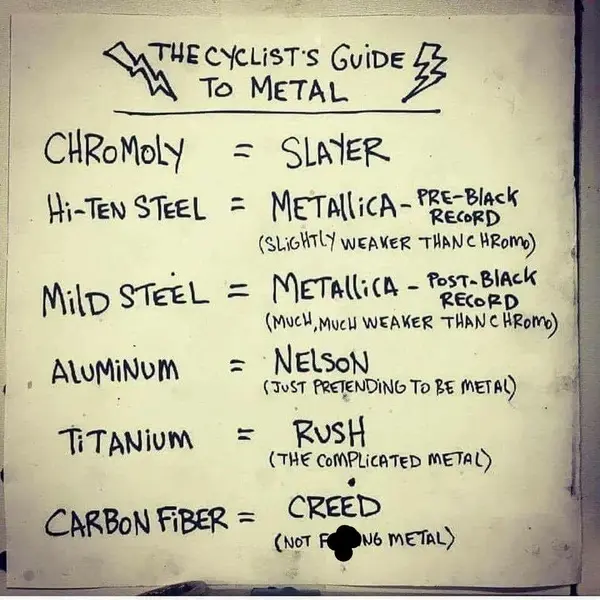 THE CYCLIST'S GUIDE
TO METAL
CHROMOLY = SLAYER
Hi-TEN STEEL = METALLiCA - PRE-BLACK RECORD
(SLiGHTLY WEAKER THAN CHROMO)
MiLD STEEL = METALLiCA - POST-BLACK RECORD
(MUCH, MUCH WEAKER THAN CHROMO)
ALUMiNUM = NELSON
(JUST PRETENDiNG TO BE METAL)
TiTANiUM = RUSH
(THE COMPLiCATED METAL)
CARBON FiBER = CREED
(NOT F NG METAL)